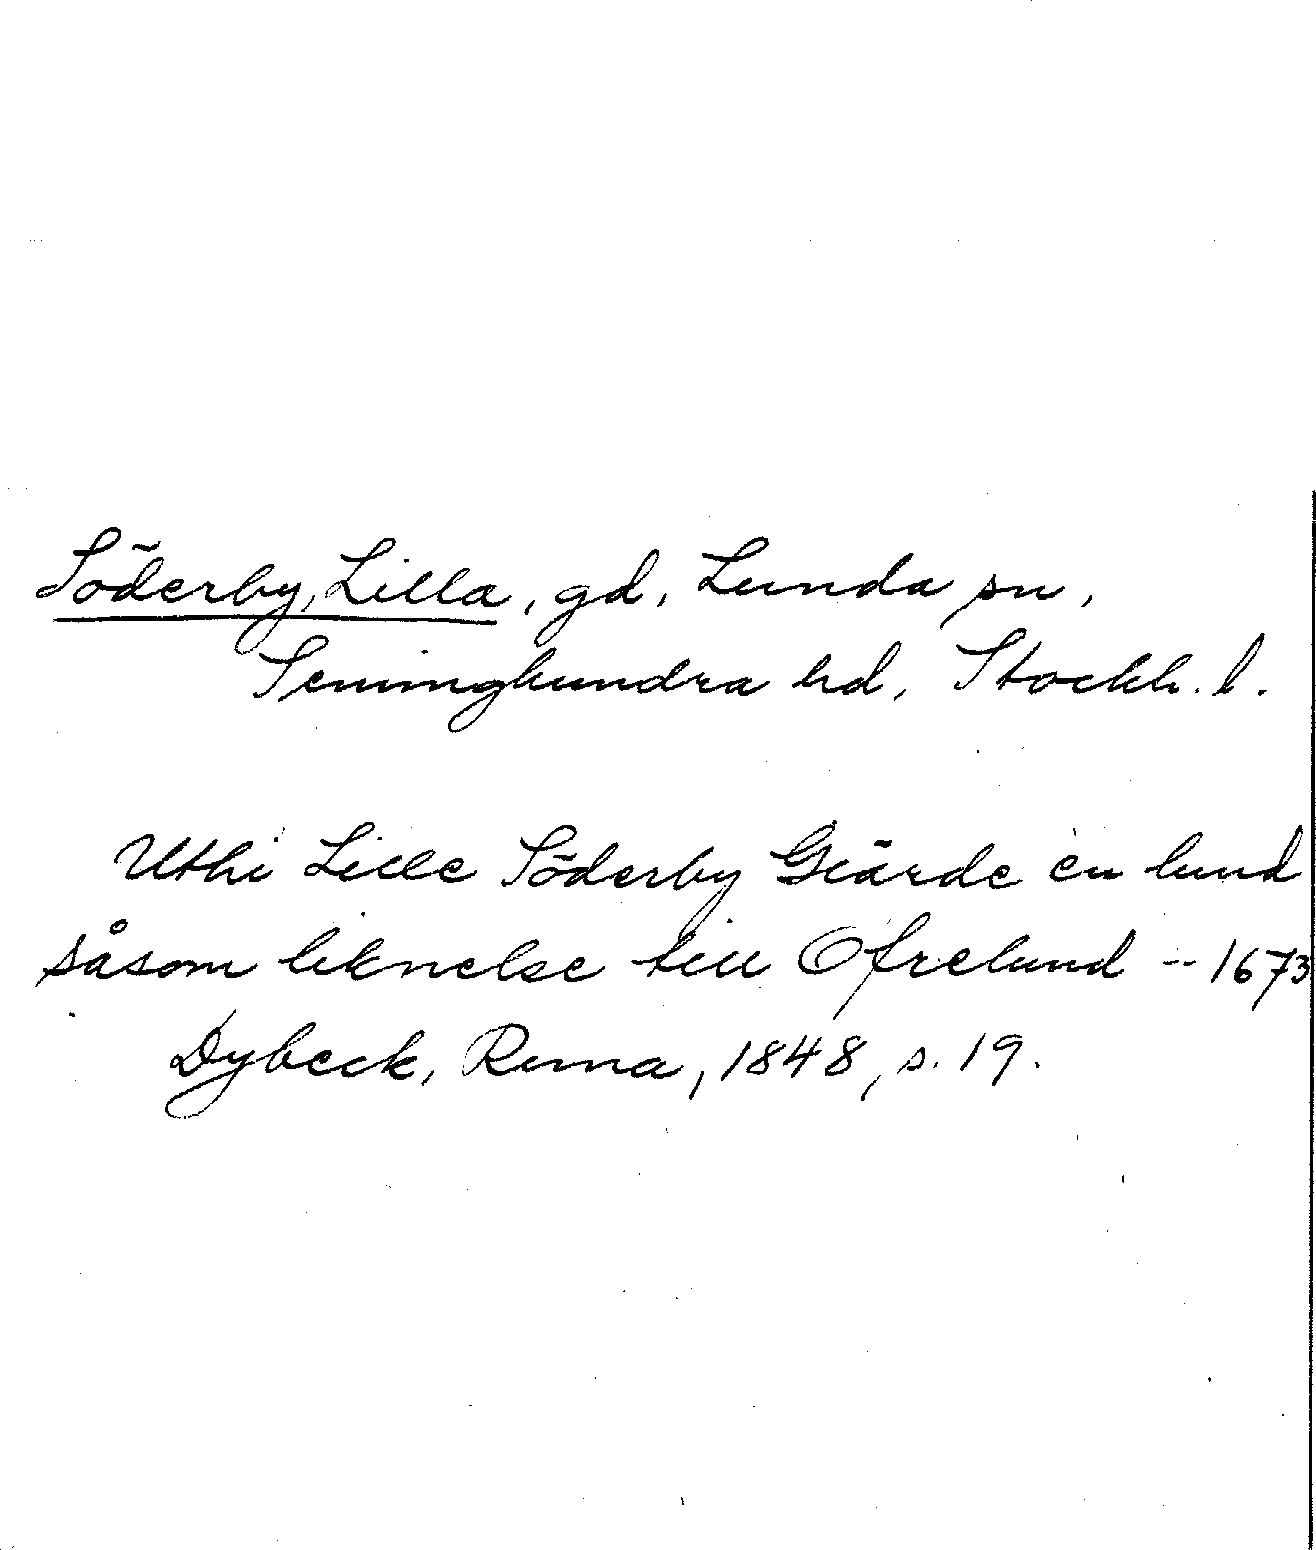 Söderby, Lilla, gd, Lunda sn,
Seminghundra hd, Stockh. l.
Uthi Lille Söderby Giärde en lund
såsom liknelse till Ofrelund -- 1673
Dybeck, Runa, 1848, s. 19.